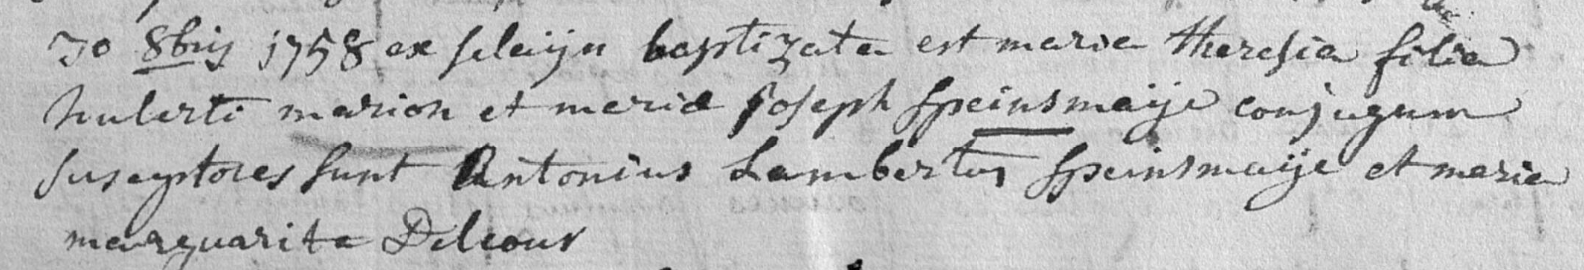 30 8bris 1758 ex sclaijn baptizata est maria theresia filia
huberti marion et mariæ joseph speinsmaije conjugum
susceptores sunt Antonius Lambertus speinsmaije et maria
marguarita Delcour